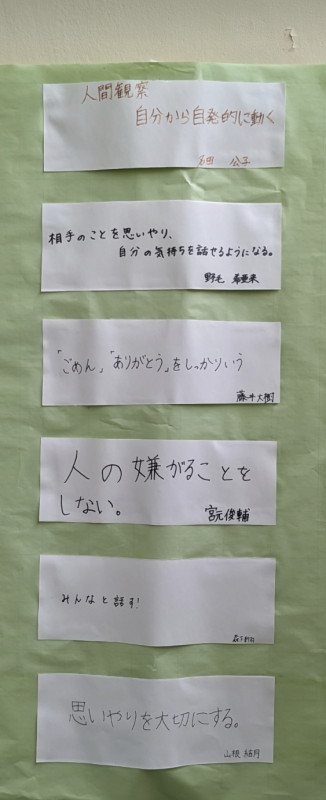 人間観察
自分から自発的に動く
名田 公子
相手のことを思いやり、
自分の気持ちを話せるようになる。
野毛
「ごめん」「ありがとう」をしっかりいう
藤井大樹
人の嫌がることを
しない。
宮元俊輔
みんなと話す!
思いやりを大切にする。
山根 結月